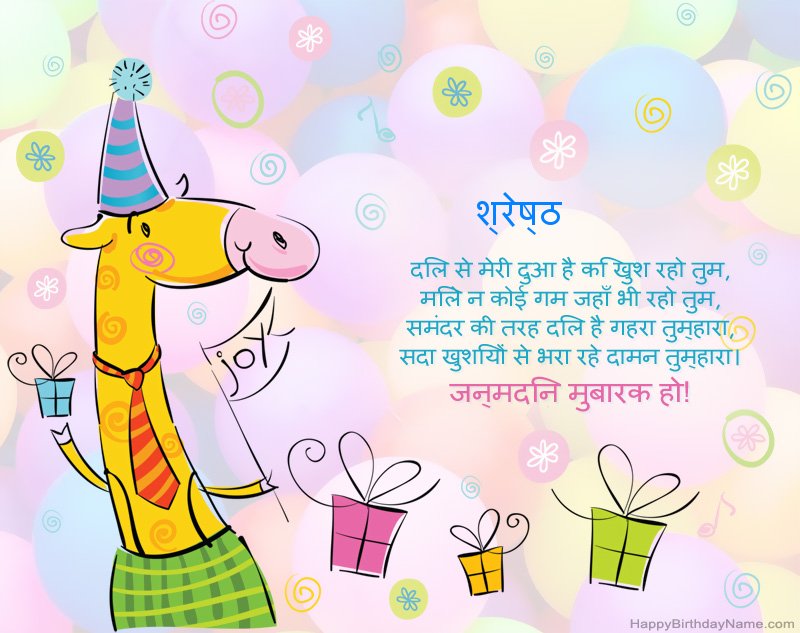 श्रेष्ठ
दिल से मेरी दुआ है कि खुश रहो तुम,
मिले न कोई गम जहाँ भी रहो तुम,
समंदर की तरह दिल है गहरा तुम्हारा,
सदा खुशियों से भरा रहे दामन तुम्हारा।
जन्मदिन मुबारक हो!
joy
HappyBirthdayName.com